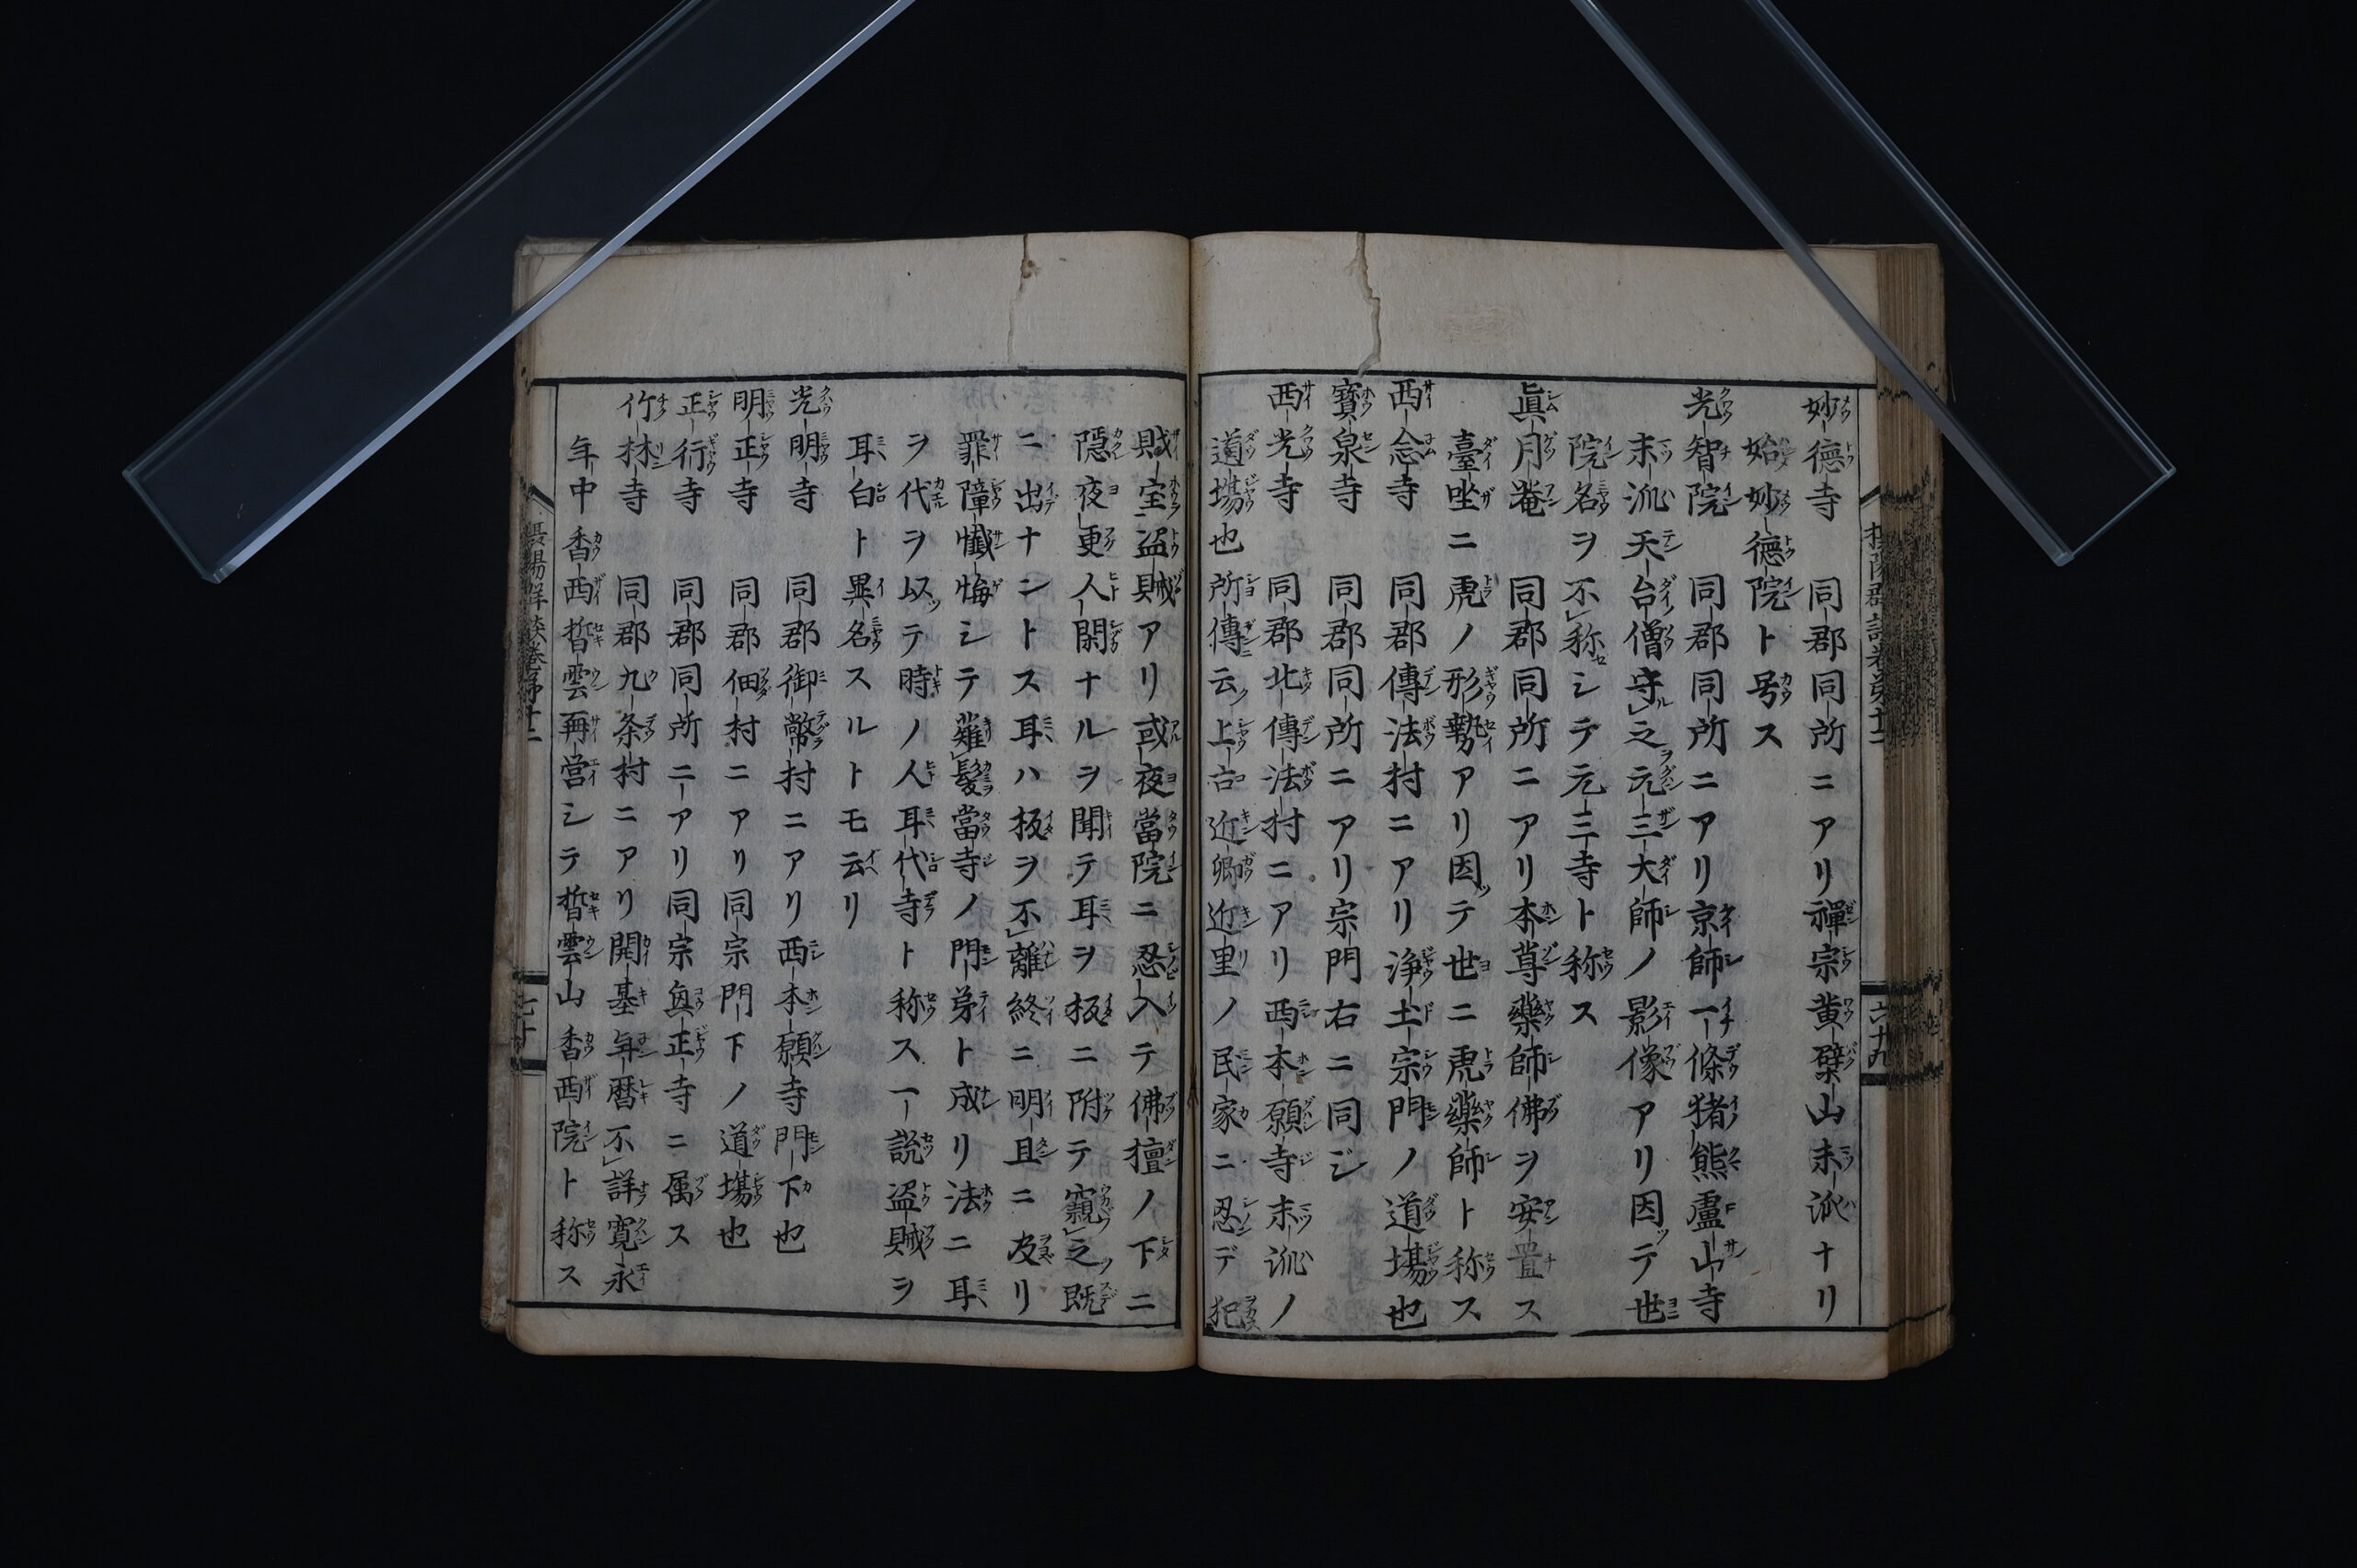 妙德寺 同郡同所ニアリ禪宗黄檗山末派ナリ
始妙德院ト号ス
光智院 同郡同所ニアリ京師一條猪熊盧山寺
末派天台僧守之元三大師ノ影像アリ因テ世
院名ヲ不称シテ元三寺ト称ス
眞月菴 同郡同所ニアリ本尊藥師佛ヲ安置ス
臺坐ニ虎ノ形勢アリ因テ世ニ虎藥師ト称ス
西念寺 同郡傳法村ニアリ浄土宗門ノ道場也
寶泉寺 同郡同所ニアリ宗門右ニ同ジ
西光寺 同郡北傳法村ニアリ西本願寺末派ノ
道場也所傳云上古近郷近里ノ民家ニ忍デ犯
財宝盗賊アリ或夜當院ニ忍入テ佛檀ノ下ニ
隱夜更人閑ナルヲ聞テ耳ヲ板ニ附テ窺之既
ニ出ナントス耳ハ板ヲ不離終ニ明旦ニ及リ
罪障懺悔シテ薙髪當寺ノ門弟ト成リ法ニ耳
ヲ代ヲ以テ時ノ人耳代寺ト称ス一説盗賊ヲ
耳白ト異名スルトモ云リ
光明寺 同郡御幣村ニアリ西本願寺門下也
明正寺 同郡佃村ニアリ同宗門下ノ道場也
正行寺 同郡同所ニアリ同宗眞正寺ニ属ス
竹林寺 同郡九条村ニアリ開基年暦不詳寛永
年中香西晢雲再営シテ晢雲山香西院ト称ス
七十
六十九